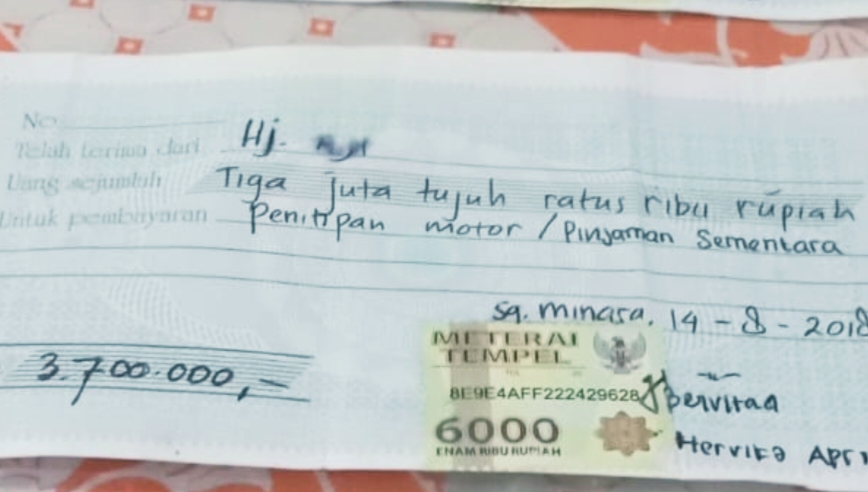 No
Telah terima dari Hj.
Uang sejumlah Tiga juta tujuh ratus ribu rupiah
Untuk pembayaran Penitipan motor / Pinjaman Sementara
Sq. minasa, 14 - 8 - 2018
METERAI
TEMPEL
3.700.000,-
8E9E4AFF222429628
6000
ENAM RIBU RUPIAH